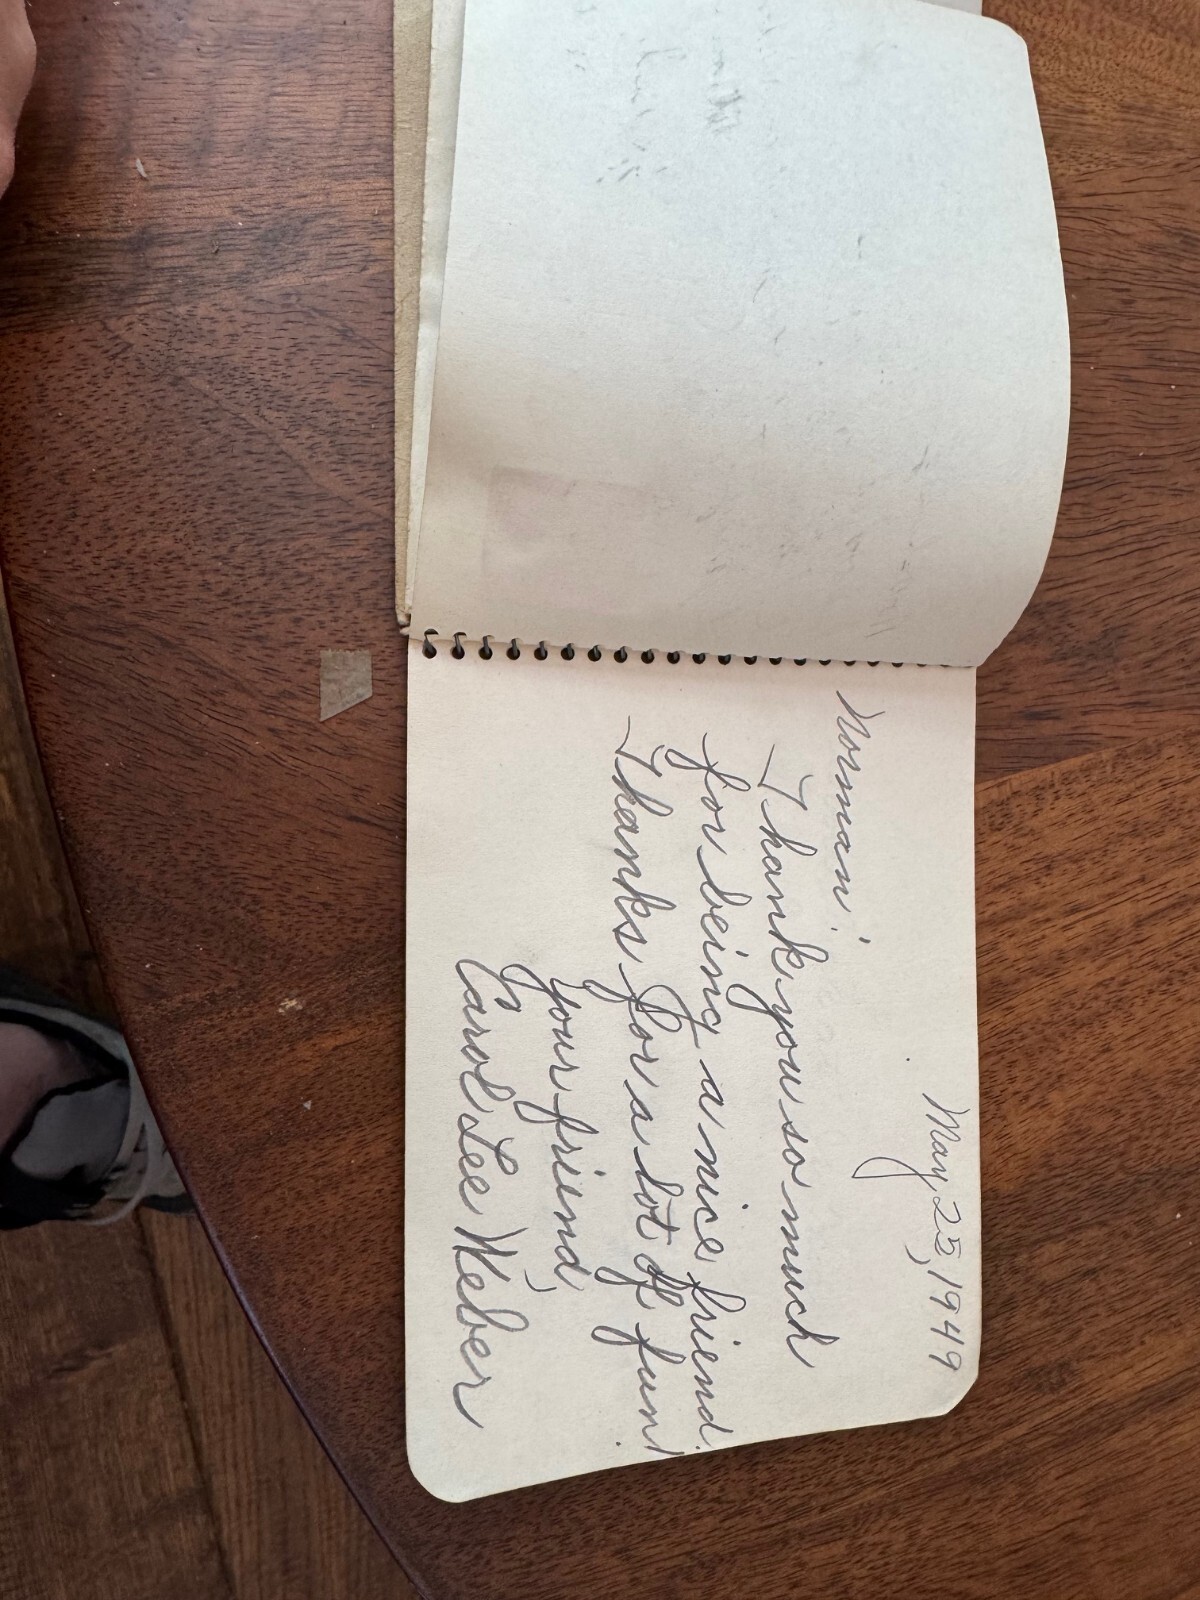 May 25, 1949
Norman,
Thank you so much
for being a nice friend.
Thanks for a lot of fun!
Your friend,
Carol Lee Weber